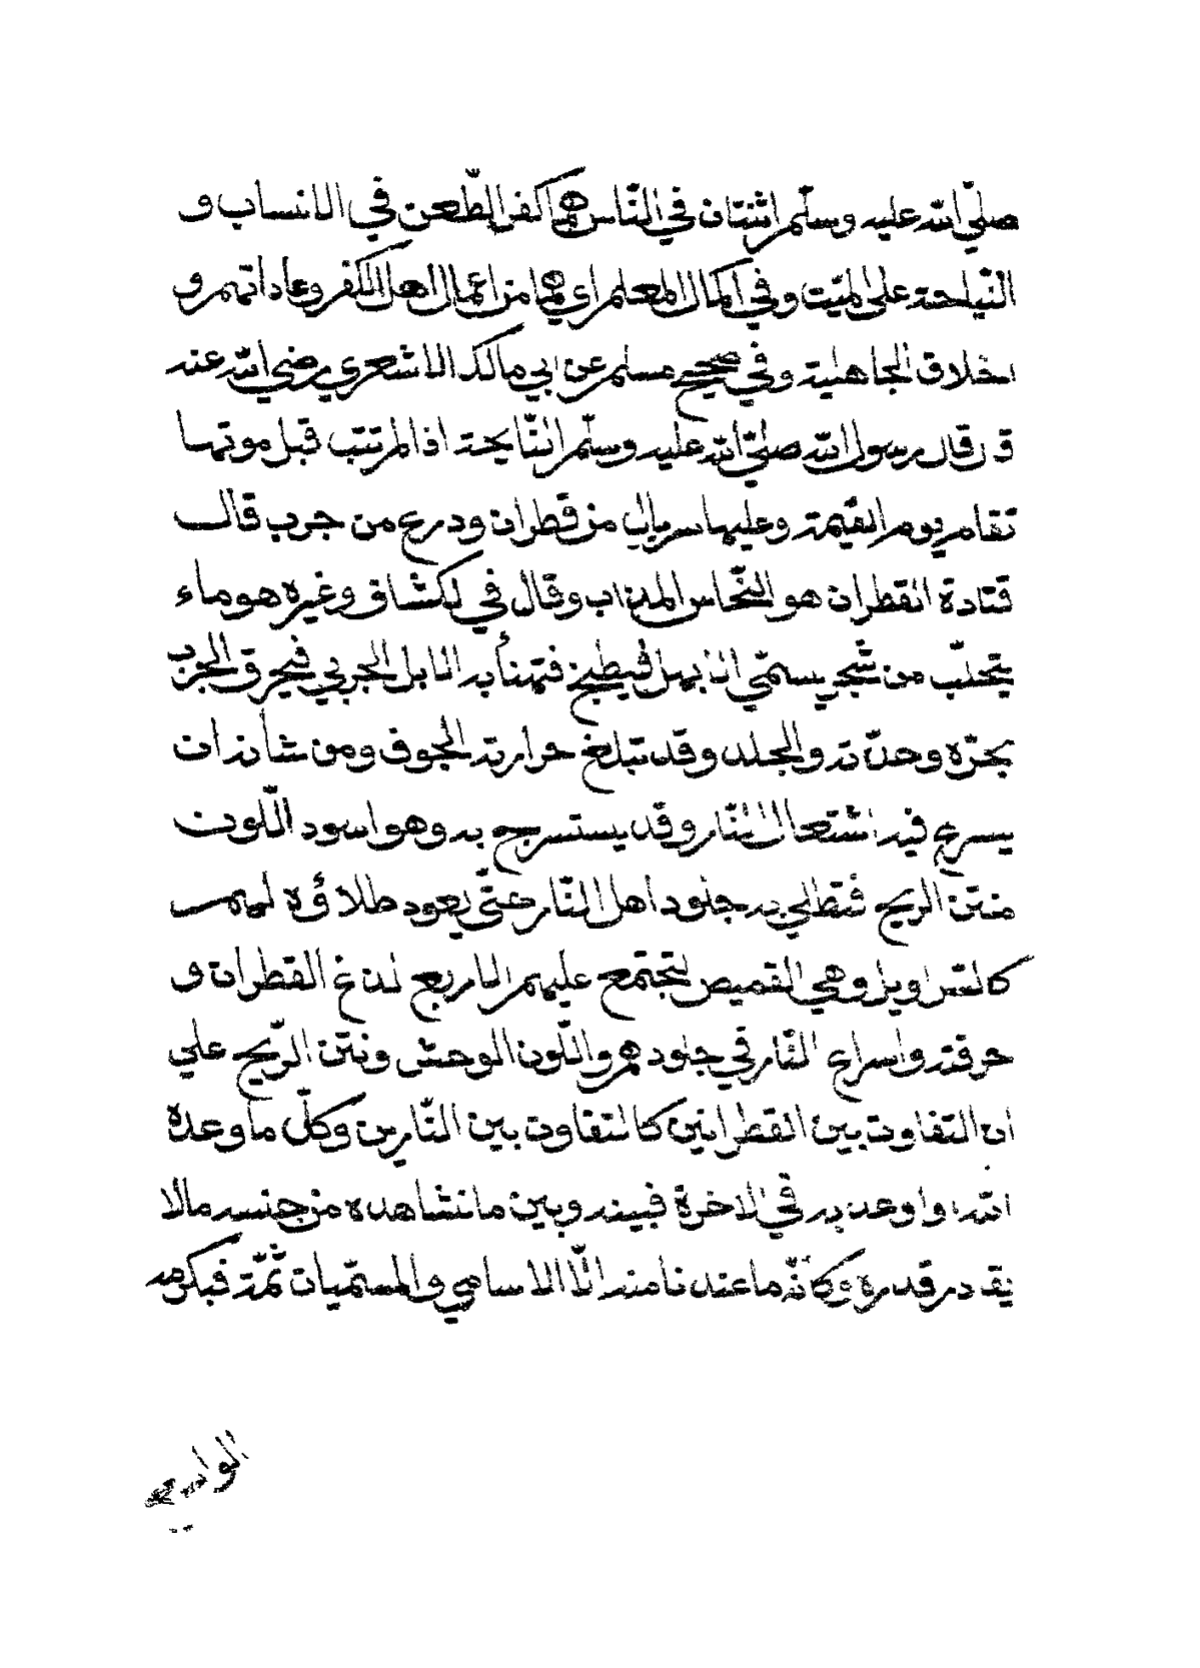 صلّي الله عليه وسلّم اثنتان في النّاس هما كفر الطّعن في الانساب و
النّياحة على الميّت وفي اكمال المعلم اي هما من اعمال اهل الكفر وعاداتهم و
اخلاق الجاهلية وفي صحيح مسلم عن ابي مالك الاشعري رضي الله عنه
ق ل قال رسول الله صلّي الله عليه وسلّم النّايحة اذا لم تتب قبل موتها
تقام يوم القيٰمة وعليها سربال من قطران ودرع من جرب قال
قتادة القطران هو النّحاس المذاب وقال في لكشاف وغيره هو ماء
يتحلّب من شجر يسمّي الابهل فيطبخ فتهنأ به الابل الجربي فيحرق الجرب
بحرّه وحدّته والجلد وقد تبلغ حرارته الجوف ومن شأنه ان
يسرع فيه اشتعال النّار وقد يستسرج به وهو اسود اللّون
منتن الريح فتطلي به جلود اهل النّار حتّي يعود طلاؤه لهم
كالسّراويل وهي القميص لتجتمع عليهم الاربع لدغ القطران و
حرقته واسراع النّار في جلودهم واللّون الوحش ونتن الرّيح علي
ان التفاوت بين القطرانين كالتفاوت بين النّارين وكلّ ما وعده
الله او اوعد به في الاخرة فبينه وبين ما نشاهده من جنسه مالا
يقادر قدره وكأنّه ما عندنا منه الّا الاسامي والمسمّيات ثمّة فبكرمه
الواسع